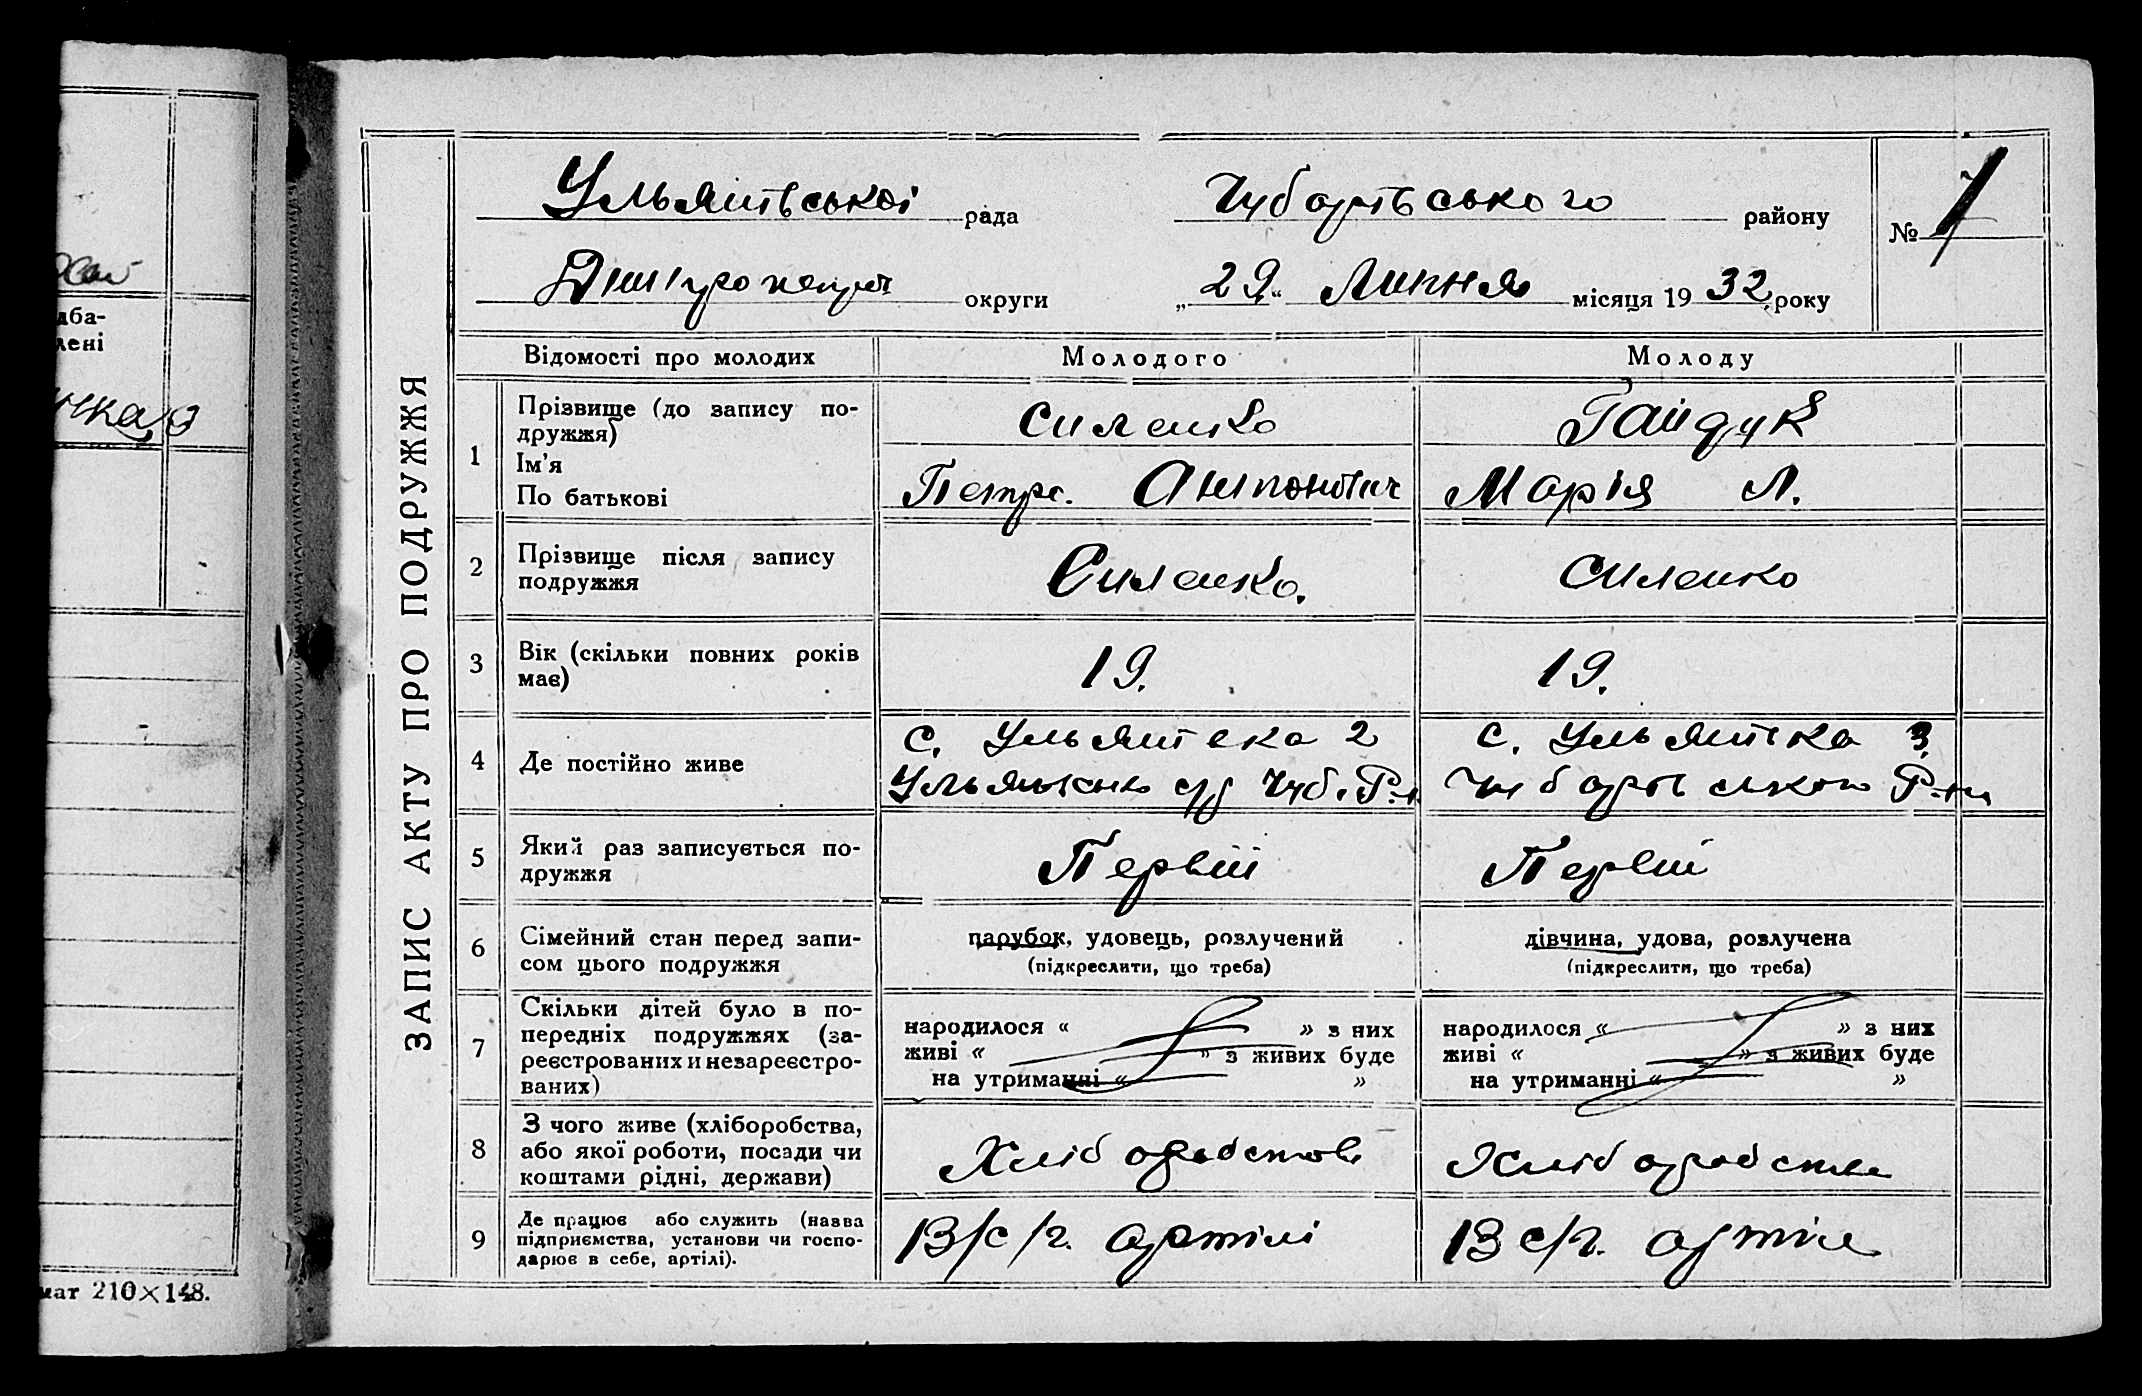 дба-
лені
мат 210×148.
ЗАПИС АКТУ ПРО ПОДРУЖЖЯ
Ульянівської рада Чубарівського району № 7
Дніпропетр округи „29“ Липня місяця 1932 року
Відомості про молодих Молодого Молоду
1 Прізвище (до запису по-
дружжя) Силенко Гайдук
Ім’я
По батькові Петро. Антонович Марія Л.
2 Прізвище після запису
подружжя Силенко. Силенко
3 Вік (скільки повних років
має) 19. 19.
4 Де постійно живе с. Ульянівка 2 с. Ульянівка 3
Чуб. Р-н Чубарівського Р-ну
5 Який раз записується по-
дружжя Первій Первій
6 Сімейний стан перед запи-
сом цього подружжя
парубок, удовець, розлучений
(підкреслити, що треба)
дівчина, удова, розлучена
(підкреслити, що треба)
7 Скільки дітей було в по-
передніх подружжях (за-
реєстрованих и незареєстро-
ваних)
народилося « » з них
живі « » з живих буде
на утриманні « »
народилося « » з них
живі « » з живих буде
на утриманні « »
8 З чого живе (хліборобства,
або якої роботи, посади чи
коштами рідні, держави)
Хліборобство Хліборобство
9 Де працює або служить (назва
підприємства, установи чи госпо-
дарює в себе, артілі).
В с/г. артілі В с/г. артіл